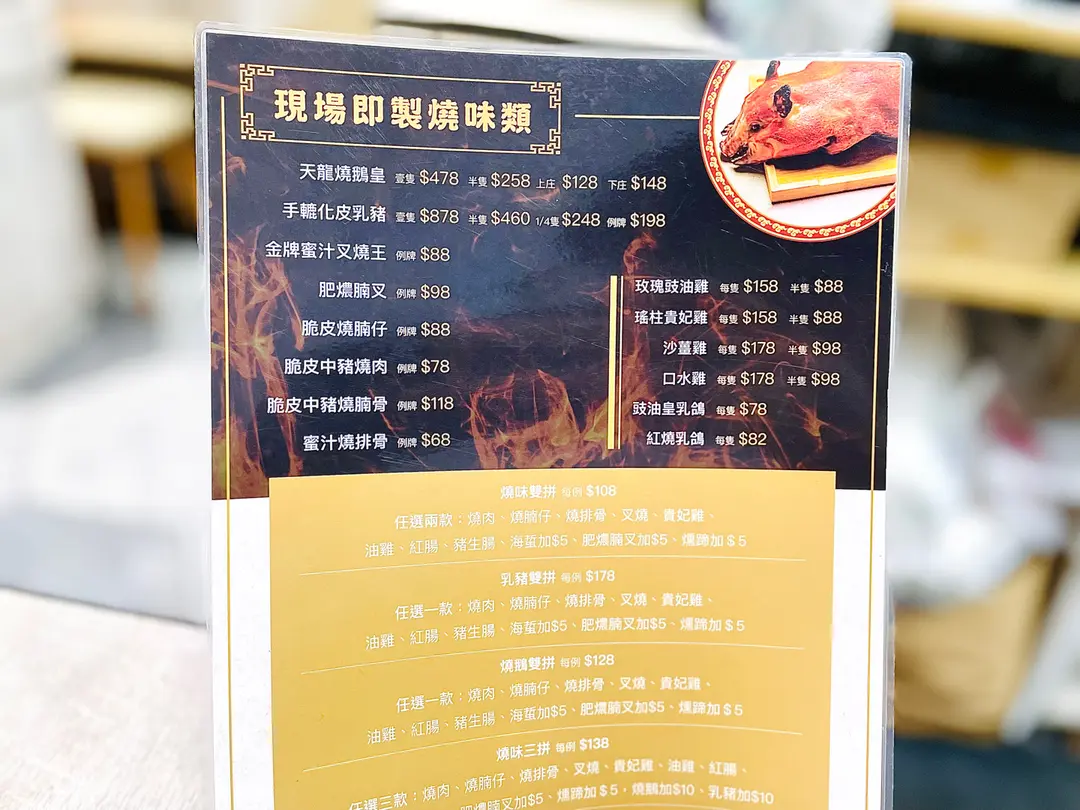 現場即製燒味類
天龍燒鵝皇 壹隻 $478 半隻 $258 上庄 $128 下庄 $148
手轆化皮乳豬 壹隻 $878 半隻 $460 1/4隻 $248 例牌 $198
金牌蜜汁叉燒王 例牌 $88
肥燶腩叉 例牌 $98
脆皮燒腩仔 例牌 $88
脆皮中豬燒肉 例牌 $78
脆皮中豬燒腩骨 例牌 $118
蜜汁燒排骨 例牌 $68
玫瑰豉油雞 每隻 $158 半隻 $88
瑤柱貴妃雞 每隻 $158 半隻 $88
沙薑雞 每隻 $178 半隻 $98
口水雞 每隻 $178 半隻 $98
豉油皇乳鴿 每隻 $78
紅燒乳鴿 每隻 $82
燒味雙拼 每例 $108
任選兩款：燒肉、燒腩仔、燒排骨、叉燒、貴妃雞、
油雞、紅腸、豬生腸、海蜇加$5、肥燶腩叉加$5、燻蹄加＄5
乳豬雙拼 每例 $178
任選一款：燒肉、燒腩仔、燒排骨、叉燒、貴妃雞、
油雞、紅腸、豬生腸、海蜇加$5、肥燶腩叉加$5、燻蹄加＄5
燒鵝雙拼 每例 $128
任選一款：燒肉、燒腩仔、燒排骨、叉燒、貴妃雞、
油雞、紅腸、豬生腸、海蜇加$5、肥燶腩叉加$5、燻蹄加＄5
燒味三拼 每例 $138
任選三款：燒肉、燒腩仔、燒排骨、叉燒、貴妃雞、油雞、紅腸、
肥燶腩叉加$5、燻蹄加＄5，燒鵝加$10、乳豬加$10